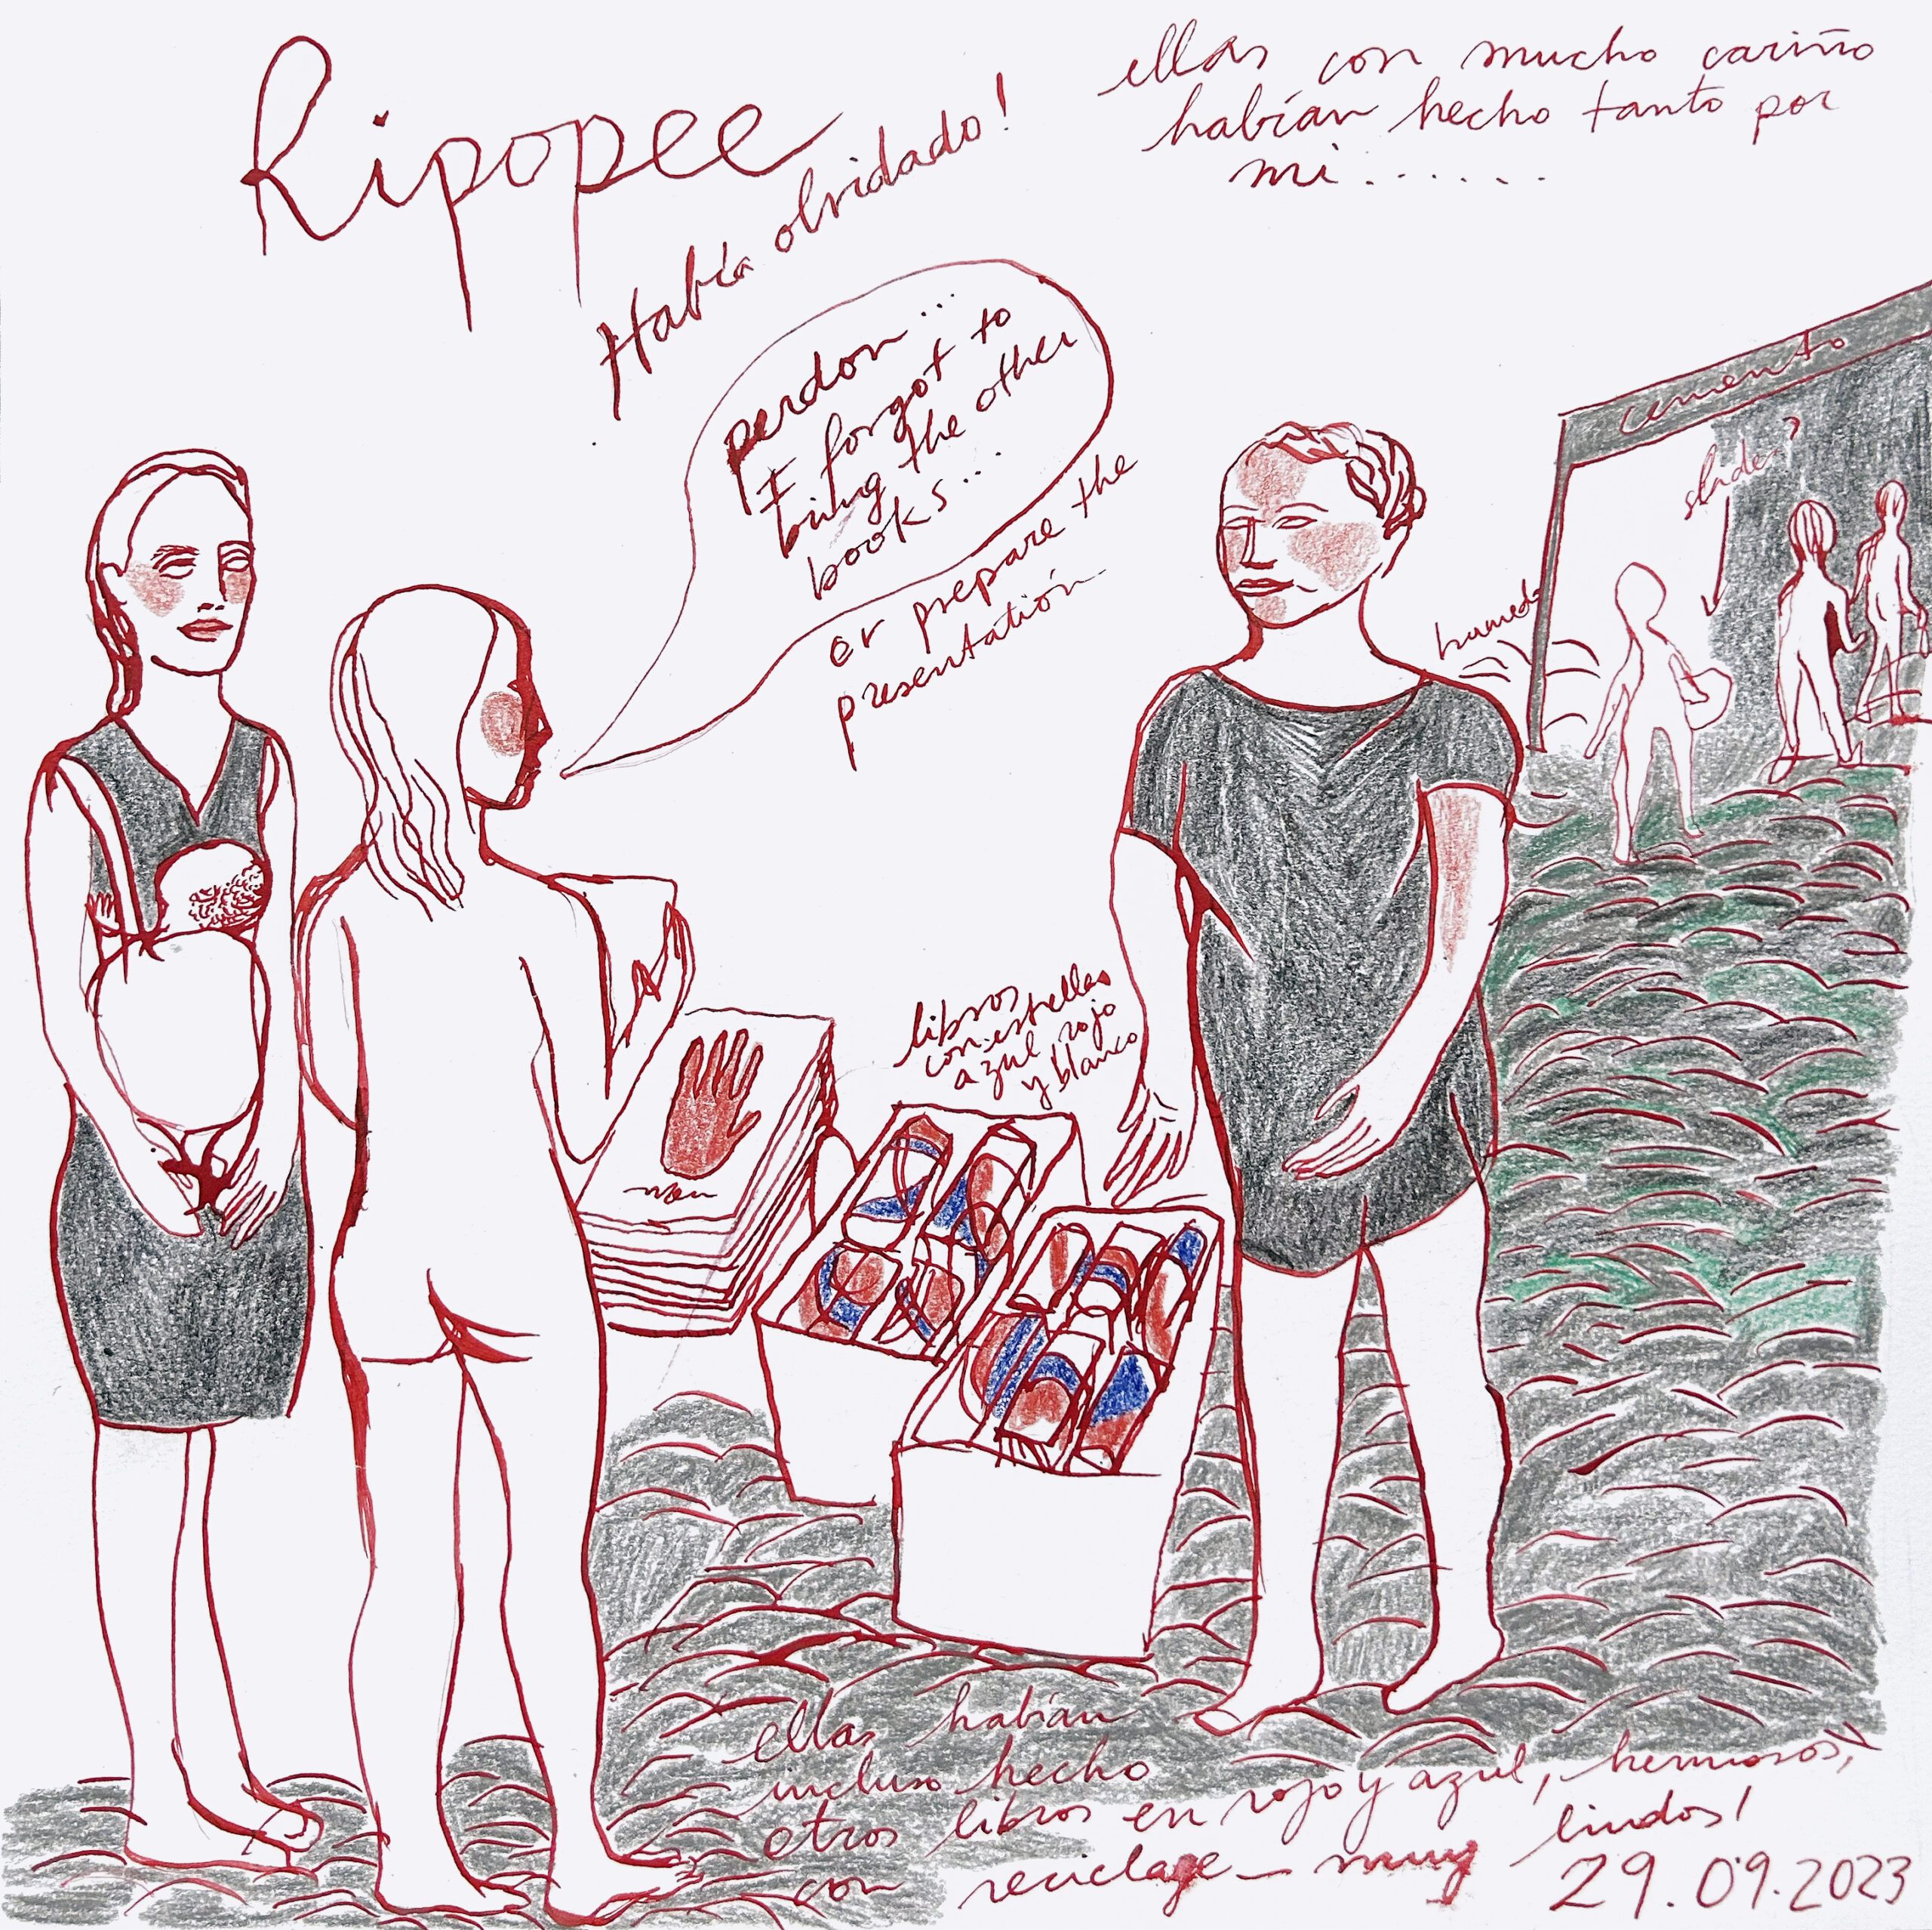 Ripopee
Había olvidado!
ellas con mucho cariño
habían hecho tanto por
mi.......
perdon...
I forgot to
bring the other
books...
or prepare the
presentatión
cemento
slade?
humeda
libros
con estrellas
azul rojo
y blanco
men
ellas habían
incluso hecho
otros libros en rojo y azul, hermosos,
con reciclage - muy lindos!
29.09.2023